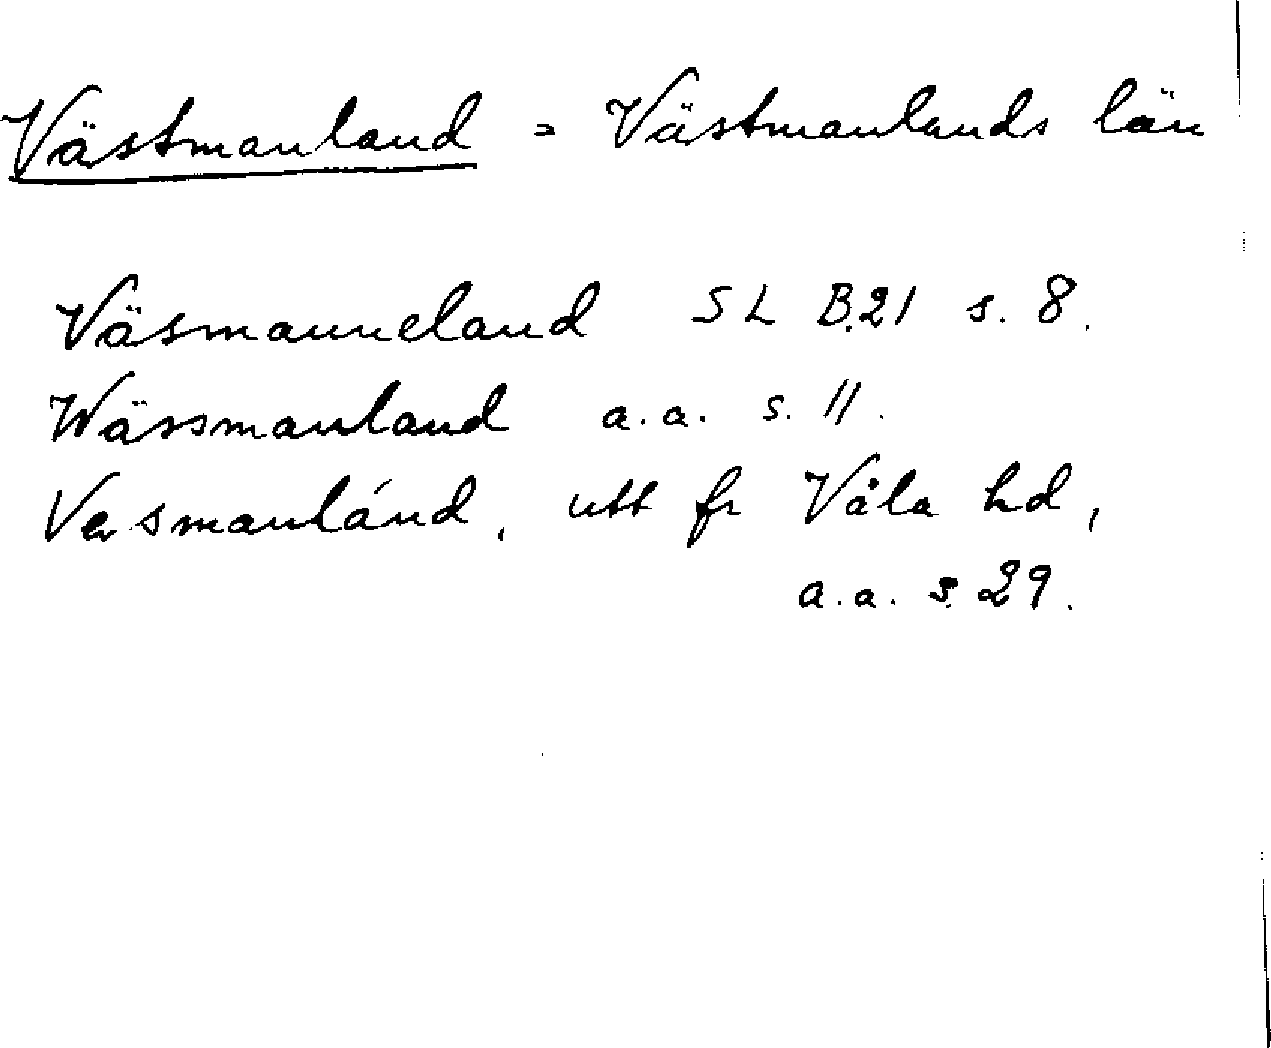 Västmanland = Västmanlands län
Väsmanneland SL B.21 s. 8.
Wässmanland a.a. s. 11.
Vesmanlánd, utt fr Våla hd,
a.a. s. 29.